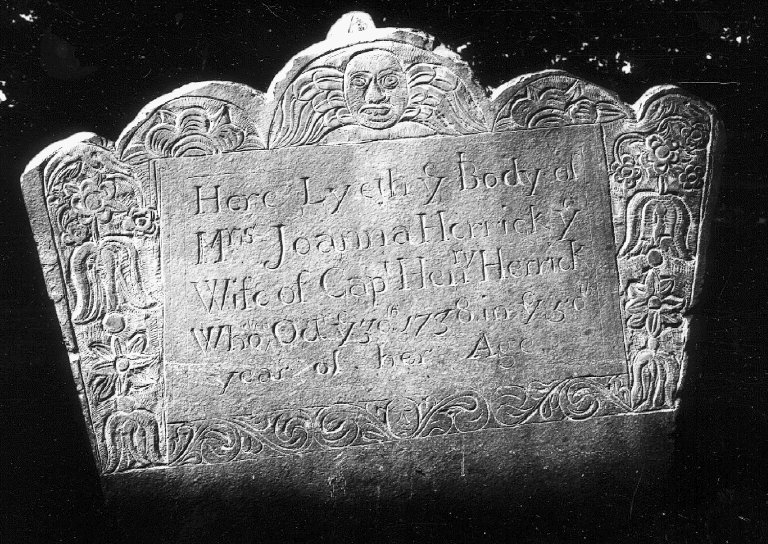 Here Lyeth yᵉ Body of
Mʳˢ Joanna Herrick yᵉ
Wife of Capᵗ Henʳʸ Herrick
Who 1738 in yᵉ
year of her Age